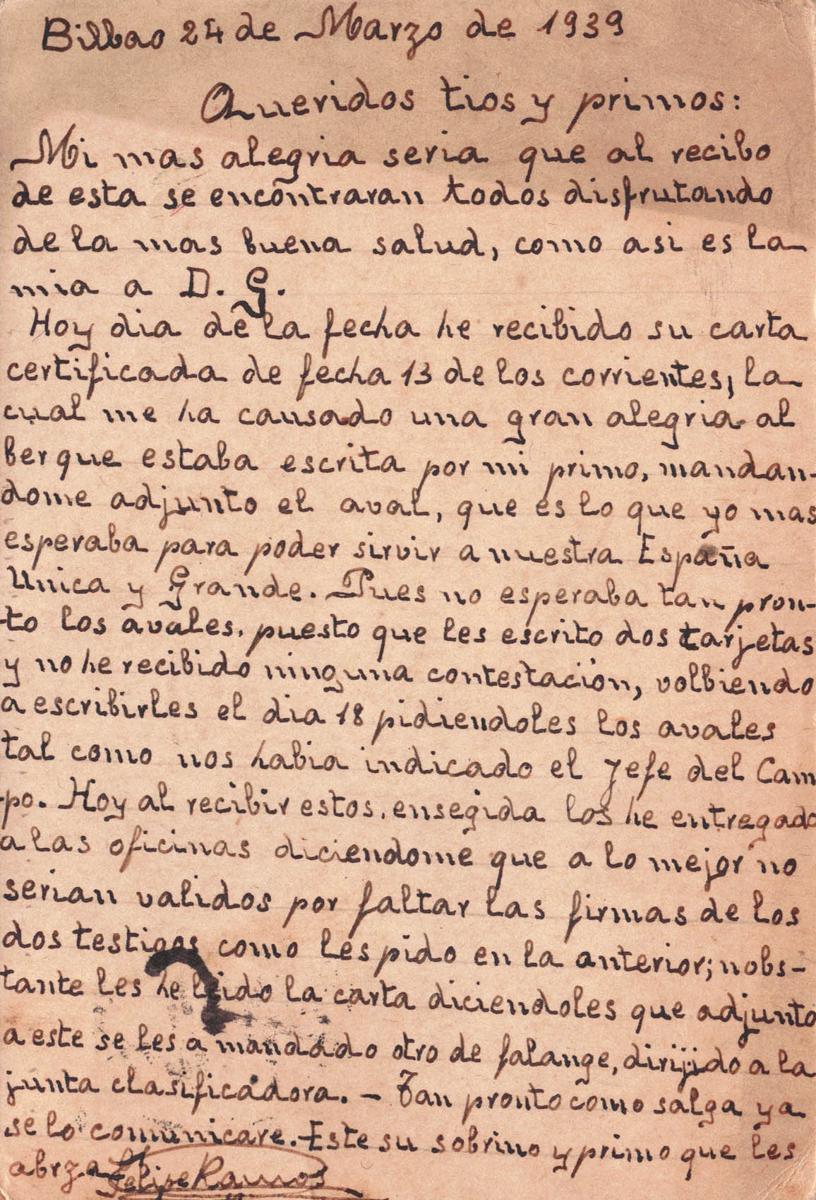 Bilbao 24 de Marzo de 1939
Queridos tios y primos:
Mi mas alegria seria que al recibo
de esta se encontraran todos disfrutando
de la mas buena salud, como asi es la
mia a D. G.
Hoy dia de la fecha he recibido su carta
certificada de fecha 13 de los corrientes, la
cual me ha causado una gran alegria al
ber que estaba escrita por mi primo, mandan-
dome adjunto el aval, que es lo que yo mas
esperaba para poder sirvir a nuestra España
Unica y Grande. Pues no esperaba tan pron-
to los avales, puesto que les escrito dos tarjetas
y no he recibido ninguna contestación, volbiendo
a escribirles el dia 18 pidiendoles los avales
tal como nos habia indicado el Jefe del Cam
po. Hoy al recibir estos, ensegida los he entregado
a las oficinas diciendome que a lo mejor no
serian validos por faltar las firmas de los
dos testigos como les pido en la anterior; nobs-
tante les he leido la carta diciendoles que adjunto
a este se les a mandado otro de falange, dirijido a la
junta clasificadora. - Tan pronto como salga ya
se lo comunicare. - Este su sobrino y primo que les
abrza Felipe Ramos